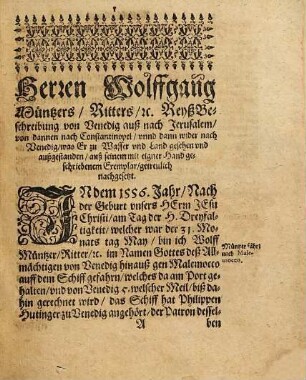 Herren Wolffgang
Müntzers / Ritters / ꝛc. Reyß Be-
schreibung von Venedig auß nach Jerusalem /
von dannen nach Constantinopel / unnd dann wider nach
Venedig / was Er zu Wasser und Land gesehen und
außgestanden / auß seinem mit eigner Hand ge-
schriebenem Exemplar / getreulich
nachgesetzt.
IN dem 1556. Jahr / Nach
der Geburt unsers HErrn JEsu
Christi / am Tag der H. Dreyfal-
tigkeit / welcher war der 31. Mo-
nats tag May / bin ich Wolff
Müntzer / Ritter / ꝛc. im Namen Gottes deß All-
mächtigen von Venedig hinauß gen Malemocco
auff dem Schiff gefahrn / welches da am Port ge-
halten / und von Venedig 5. welscher Meil / biß da-
hin gerechnet wird / das Schiff hat Philippen
Hutinger zu Venedig angehört / der Patron dessel-
A ben
Müntzer fährt
nach Male-
mocco.